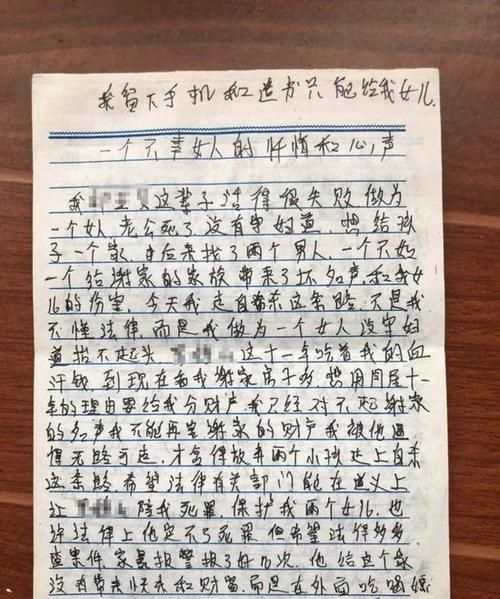 我留下手机和遗书只能给我女儿.
一个不幸女人的忏悔和心声
我 这辈子活得很失败做为
一个女人,老公死了没有守妇道,想给孩
子一个家,由后来找了两个男人,一个不如
一个给谢家的家族带来了坏名声,和我女
儿的伤害,今天我走自杀这条路,不是我
不懂法律而是我做为一个女人没守妇
道抬不起头, 这十一年吃着我的血
汗钱到现在看我谢家房子多,想用同居十一
年的理由要给我分财产,我已经对不起谢家
的名声我不能再害谢家的财产我被他逼
得无路可走,才舍得放弃两个小孩走上自杀
这条路,希望法律有关部门能在道义上
让 陪我死罪,保护我两个女儿.也
许法律上他定不了死罪但希望法律多多
查案件,家暴报警报了好几次,他给这个家
没有带来快乐和财富,而是在外面吃喝嫖